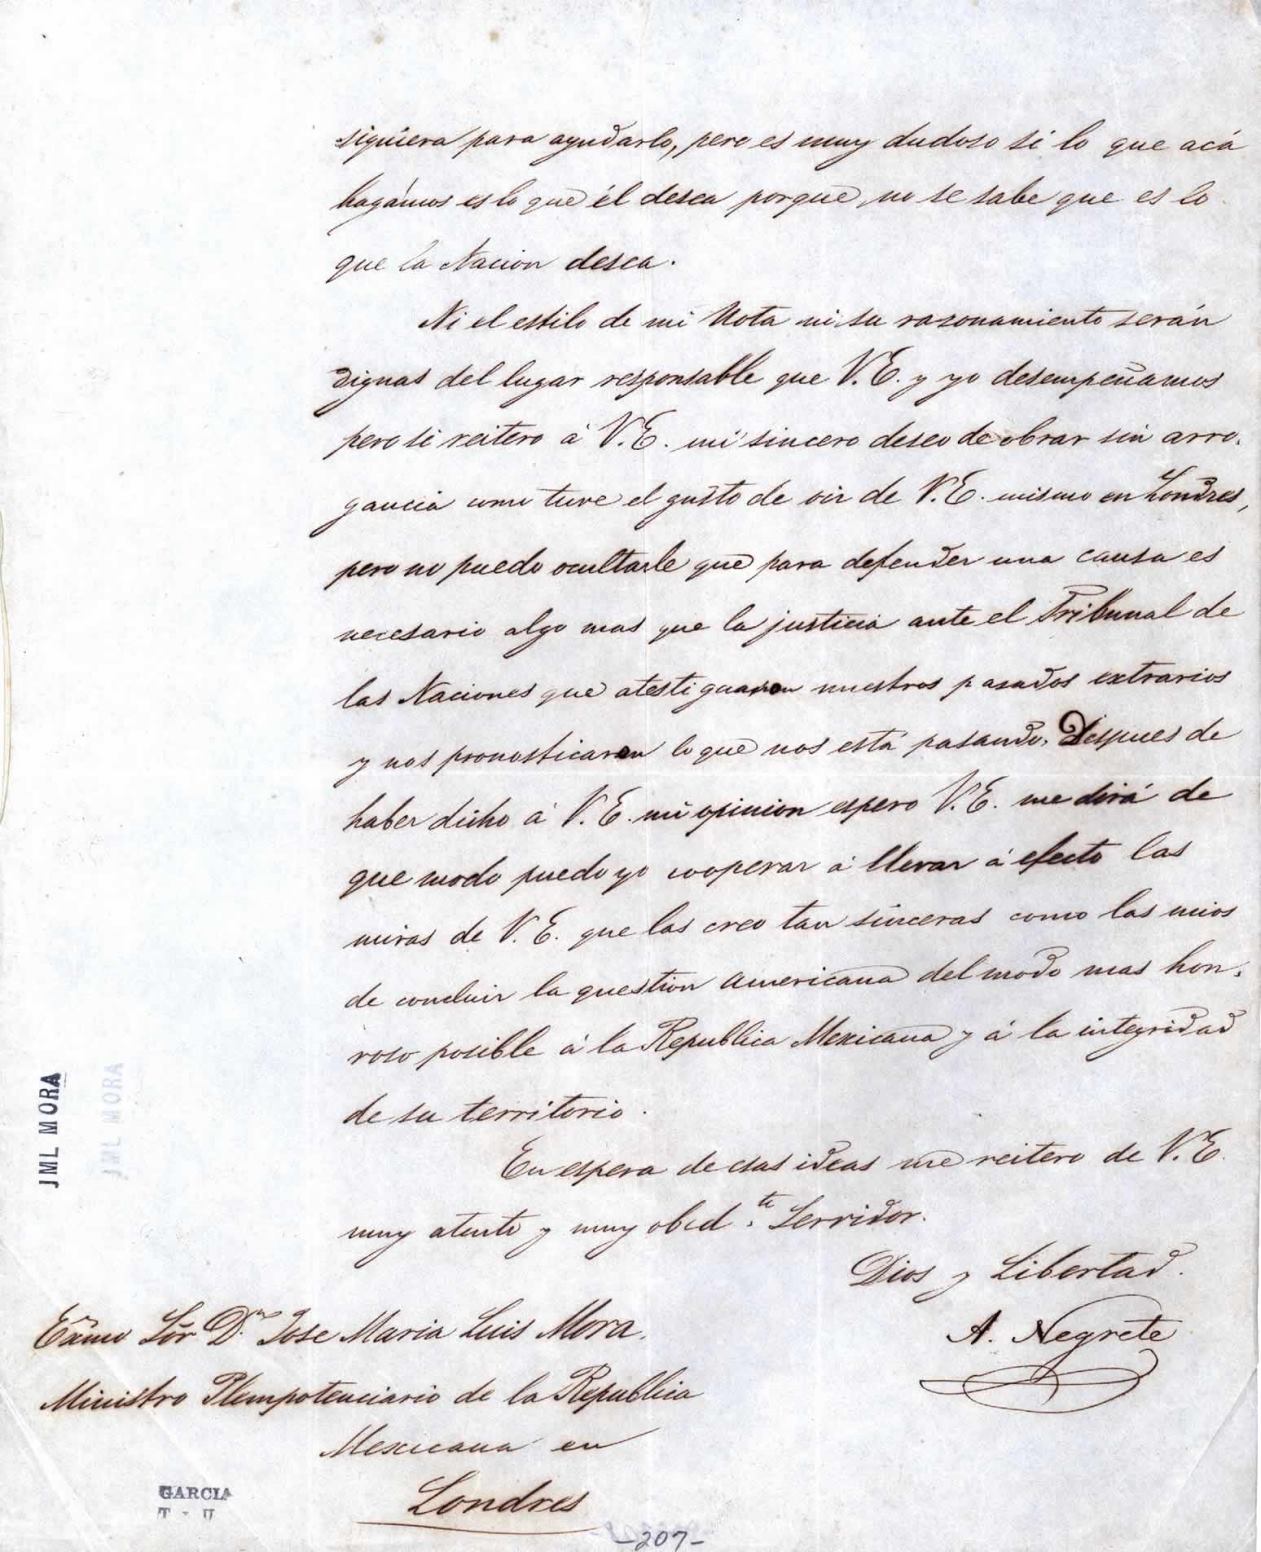 siquiera para ayudarlo, pero es muy dudoso si lo que acá
hagámos es lo que él desea porque no se sabe que es lo
que la Nacion desea.
Ni el estilo de mi Nota ni su razonamiento serán
dignas del lugar responsable que V.E. y yo desempeñamos
pero si reitero á V.E. mi sincero deseo de obrar sin arro-
gancia como tuve el gusto de oir de V.E. mismo en Londres,
pero no puedo ocultarle que para defender una causa es
necesario algo mas que la justicia ante el Tribunal de
las Naciones que atestiguaron nuestros pasados extravios
y nos pronosticaron lo que nos está pasando. Despues de
haber dicho á V.E. mi opinion espero V.E. me dirá de
que modo puedo yo cooperar á llevar á efecto las
miras de V.E. que las creo tan sinceras como las mios
de concluir la question Americana del modo mas hon-
roso posible á la Republica Mexicana y á la integridad
de su territorio.
En espera de esas ideas me reitero de V.E.
muy atento y muy obed.te Servidor.
Dios y Libertad.
A. Negrete
Exmo Sor Dn Jose Maria Luis Mora.
Ministro Plempotenciario de la Republica
Mexicana en
Londres
JML MORA
JML MORA
GARCIA
-207-